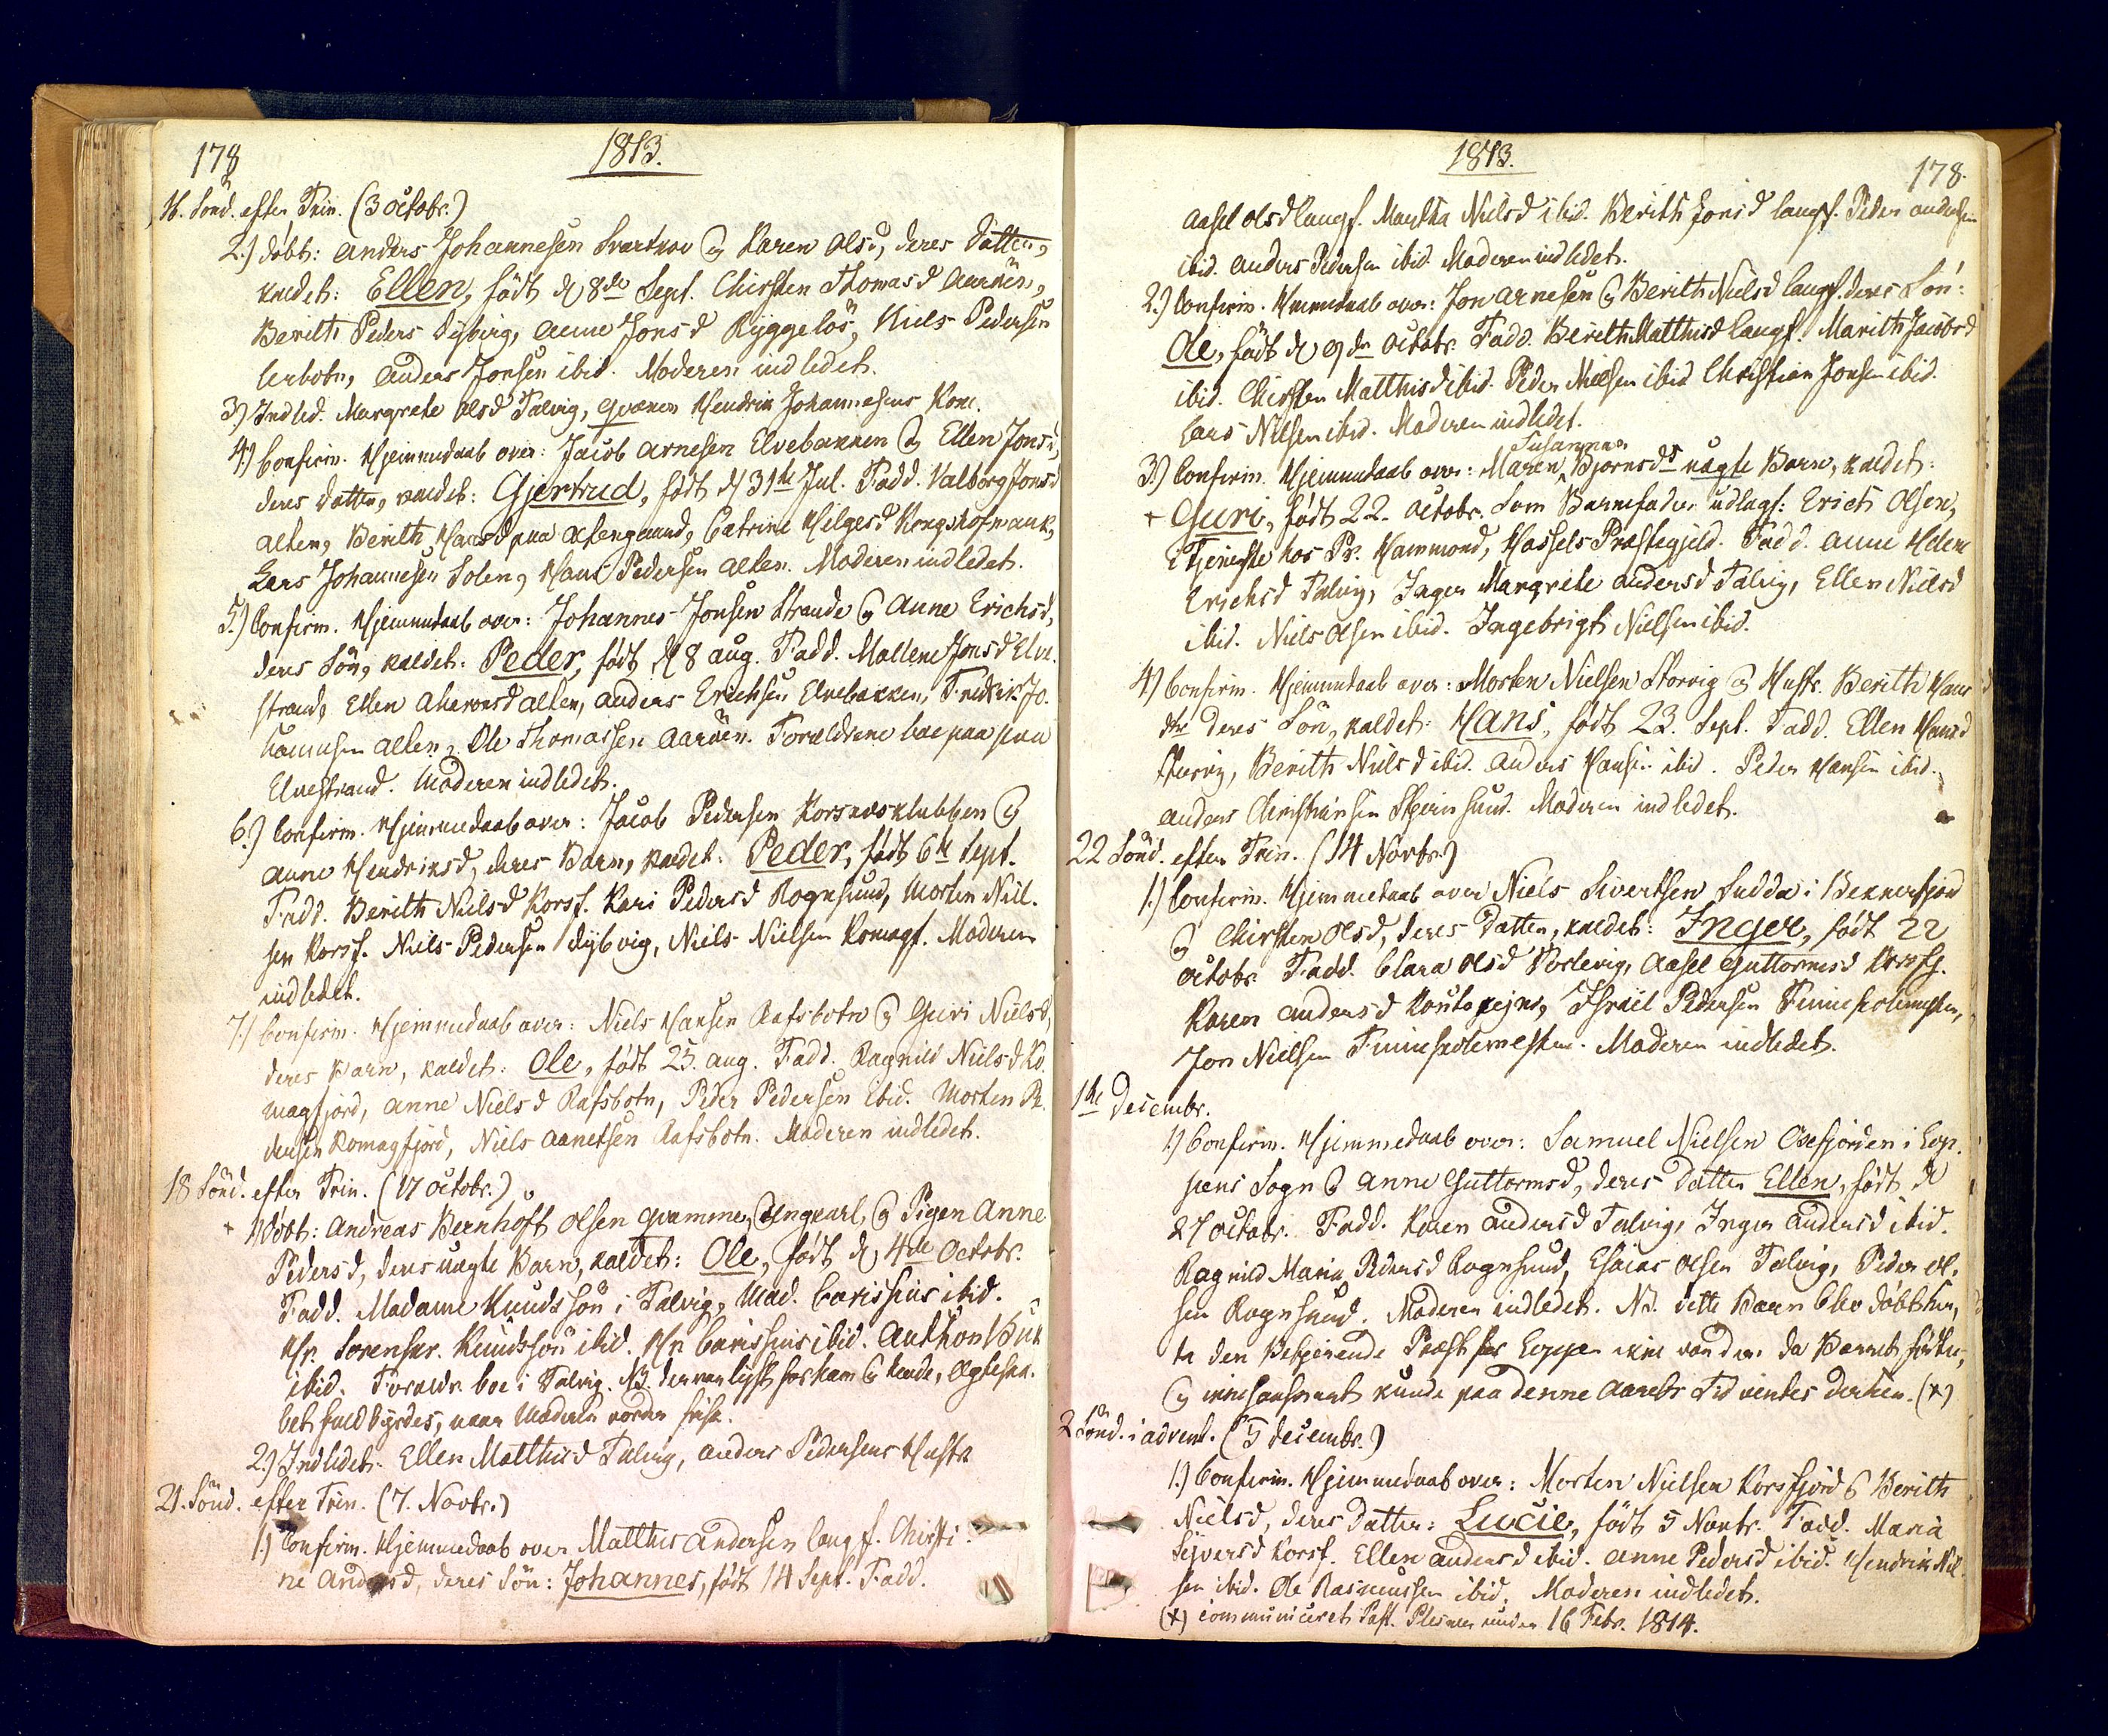 178
1813.
16. Sönd. efter Trin. (3 Octobr.)
2.) Döbt: Anders Johannesen Svartnæs og Karen Olsd, deres Datter,
kaldet: Ellen, födt d 8de Sept. Chirsten Thomasd Aaröen,
Berith Peders Dybvig, Anne Jonsd Ryggelös, Niels Pedersen
Lerbotn, Anders Jonsen ibid. Moderen indledet.
3.) Indled. Margrete Olsd Talvig, Qvænen Hendrik Johannesens Kone.
4.) Confirm. Hjemmedaab over: Jacob Arnesen Elvebakken og Ellen Jonsd,
deres Datter, kaldet: Gjertrud, födt d 31te Jul. Fadd. Valborg Jonsd
Alten, Berith Hansd paa Altengaard, Catrine Helgesd Kongshofmark,
Lars Johannesen Solen, Hans Pedersen Alten. Moderen indledet.
5.) Confirm. Hjemmedaab over: Johannes Jonsen Strande og Anne Erichsd,
deres Sön, kaldet: Peder, födt d 8 Aug. Fadd. Mallene Jonsd Elve-
strand, Ellen Aharonsd Alten, Anders Erichsen Elvebakken, Fredrik Jo-
hannesen Alten, Ole Thomassen Aaröen. Forældrene boe paa paa
Elvestrand. Moderen indledet.
6.) Confirm. Hjemmedaab over: Jacob Pedersen Korsnæsklubben og
Anne Hendriksd, deres Barn, kaldet: Peder, födt 6te Sept.
Fadd. Berith Nielsd Korsf. Kari Pedersd Rognsund, Morten Niel-
sen Korsf. Niels Pedersen Dybvig, Niels Nielsen Komagf. Moderen
indledet.
7.) Confirm. Hjemmedaab over: Niels Hansen Rafsbotn og Guri Nielsd,
deres Barn, kaldet: Ole, födt 25. Aug. Fadd. Ragnild Nielsd Ko-
magfjord, Anne Nielsd Rafsbotn, Peder Pedersen Ibid. Morten Pe-
dersen Komagfjord, Niels Aanetsen Rafsbotn. Moderen indledet.
18 Sönd. efter Trin. (17 Octobr.)
+ 1) Döbt: Andreas Bernhoft Olsen Qvamme, Ungkarl, og Pigen Anne
Pedersd, deres uægte Barn, kaldet: Ole, födt d 4de Octobr.
Fadd. Madame Knudssön i Talvig, Mad. Carissius ibid.
Hr. Sorenskr. Knudssön ibid. Hr. Carissius ibid. Anthon Buk
ibid. Forældr. boe i Talvig. NB. der var lyst for ham og hende, Ægteska-
bet fuldbyrdes, naar Moderen vorder frisk.
2.) Indledet: Ellen Matthisd Talvig, Anders Pedersens Hustr
21. Sönd. efter Trin. (7. Novbr.)
1.) Confirm. Hjemmedaab over Matthis Andersen Langf. Chirsti-
ne Andersd, deres Sön: Johannes, födt 14 Sept. Fadd.
1813.
178.
Aasel Olsd Langf. Martha Nielsd ibid. Berith Jonsd Langf. Peder Andersen
ibid. Anders Pedersen ibid. Moderen indledet.
2.) Confirm. Hjemmedaab over: Jon Arnesen og Berith Nielsd Langf. deres Sön:
Ole, födt d 9de Octobr. Fadd. Berith Matthisd Langf. Marith Jacobsd
ibid. Chirsten Matthisd ibid. Peder Nielsen ibid Christian Jonsen ibid.
Lars Nilsen ibid. Moderen indledet.
Susanna
3.) Confirm. Hjemmedaab over: Maren Bjornsds uægte Barn, kaldet:
+ Guri, födt 22. Octobr. Som Barnefader udlagt: Erich Olsen,
i Tjeneste hos Pr. Hammond, Hassels Præstegjeld. Fadd. Anne Helene
Erichsd Talvig, Inger Margrete Andersd Talvig, Ellen Nielsd
ibid. Niels Olsen ibid. Ingebrigt Nielsen ibid.
4) Confirm. Hjemmedaab over: Morten Nielsen Storvig og Hustr. Berith Hans
dtr deres Sön, kaldet: Hans, födt 23. Sept. Fadd. Ellen Hansd
Storvig, Berith Nielsd ibid. Anders Hansen ibid. Peder Hansen ibid.
Anders Christiansen Stjernsund. Moderen indledet.
22 Sönd. efter Trin. (14 Novbr.)
1.) Confirm. Hjemmedaab over Niels Sivertsen Sudda i Bekkerfjord
og Chirsten Olsd, deres Datter, kaldet: Inger, födt 22
Octobr. Fadd. Clara Olsd Torlevig, Aasel Guttormsd Korsfj.
Karen Andersd Koutokejno, Israel Pedersen Finneskolemester,
Jon Nielsen Finneskolemester. Moderen indledet.
1te Decembr.
1.) Confirm. Hjemmedaab over: Samuel Nielsen Oxefjorden i Lop-
pens Sogn og Anne Guttormsd, deres Datter Ellen, födt d
27 Octobr. Fadd. Karen Andersd Talvig, Inger Andersd ibid.
Ragnild Maria Pedersd Rognsund, Esaias Olsen Talvig, Peder Ol-
sen Rognsund. Moderen indledet. NB. dette Barn blev döbt her,
da den Betjenende Præst for Loppen ikke var der da Barnet födtes,
og ikke saasnart kunde paa denne Aarets Tid ventes derhen. (x)
2 Sönd. i Advent. (5 Decembr.)
1.) Confirm. Hjemmedaab over: Morten Nielsen Korsfjord og Berith
Nielsd, deres Datter: Lucie, födt 5 Novbr. Fadd. Maria
Sjversd Korsf. Ellen Andersd ibid. Anne Pedersd ibid. Hendrik Nil-
sen ibid. Ole Rasmussen ibid. Moderen indledet.
(x) communiceret Past. under 16 Febr. 1814.